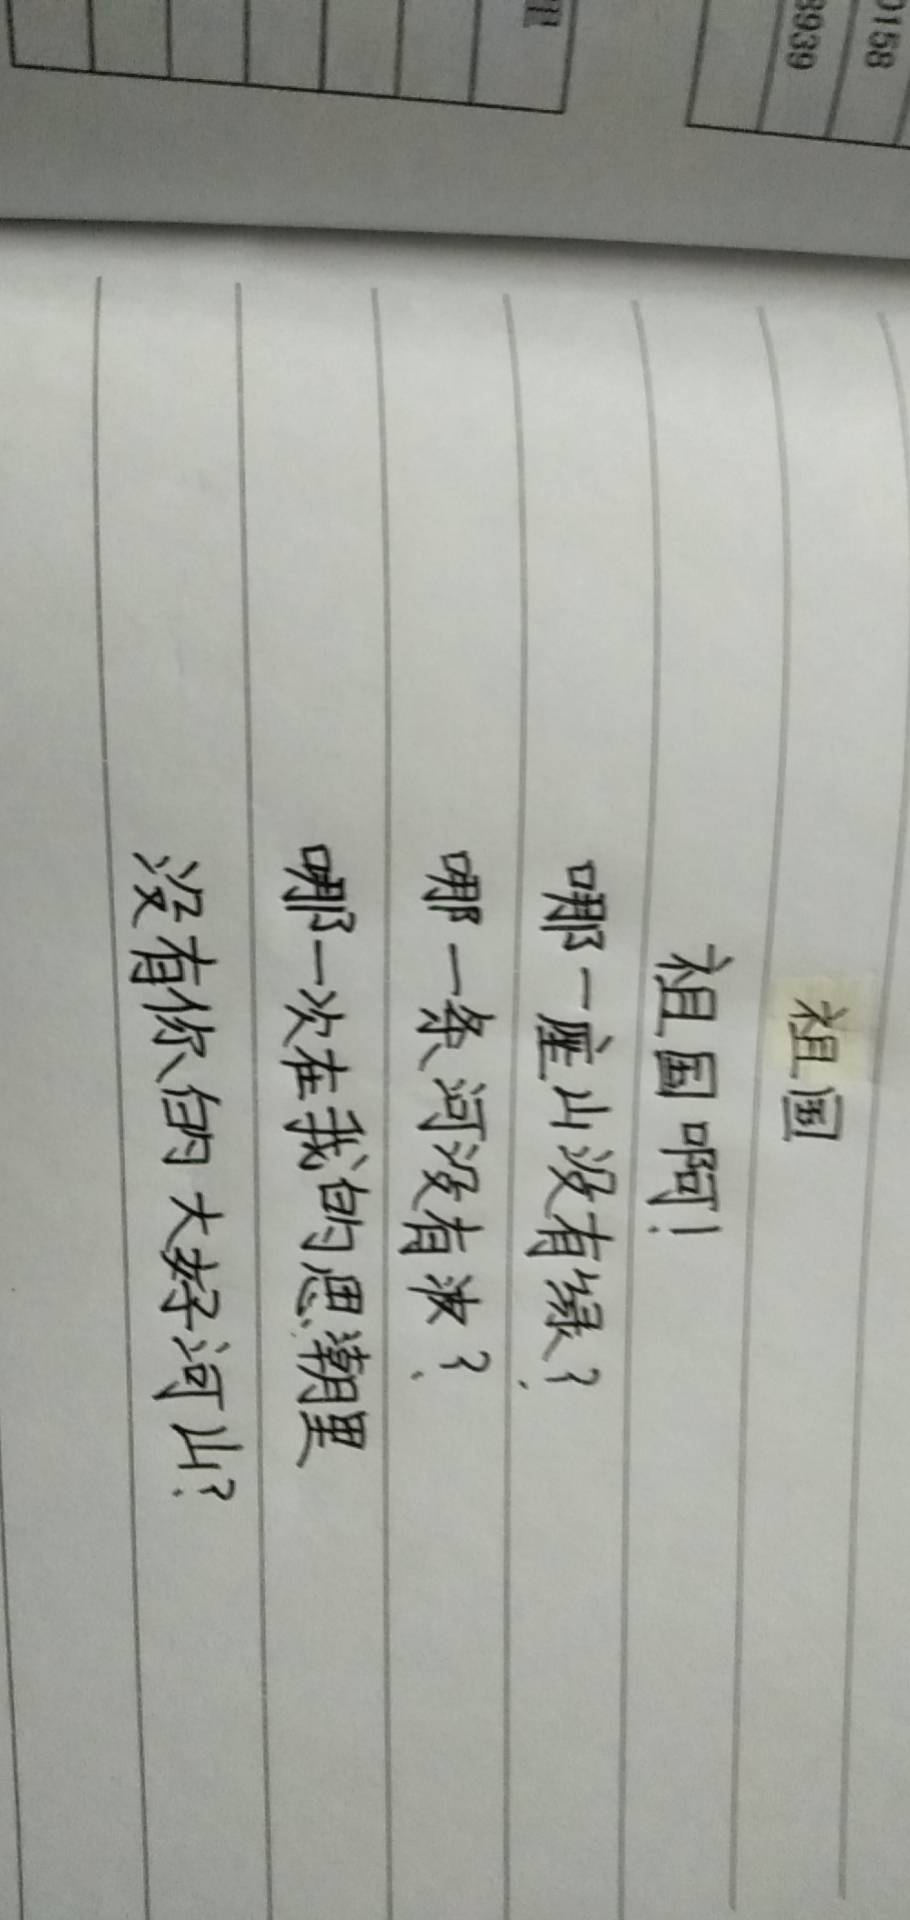 0158
8939
祖国
祖国啊!
哪一座山没有绿?
哪一条河没有汝?
哪一次在我的思潮里
没有你的大好河山?